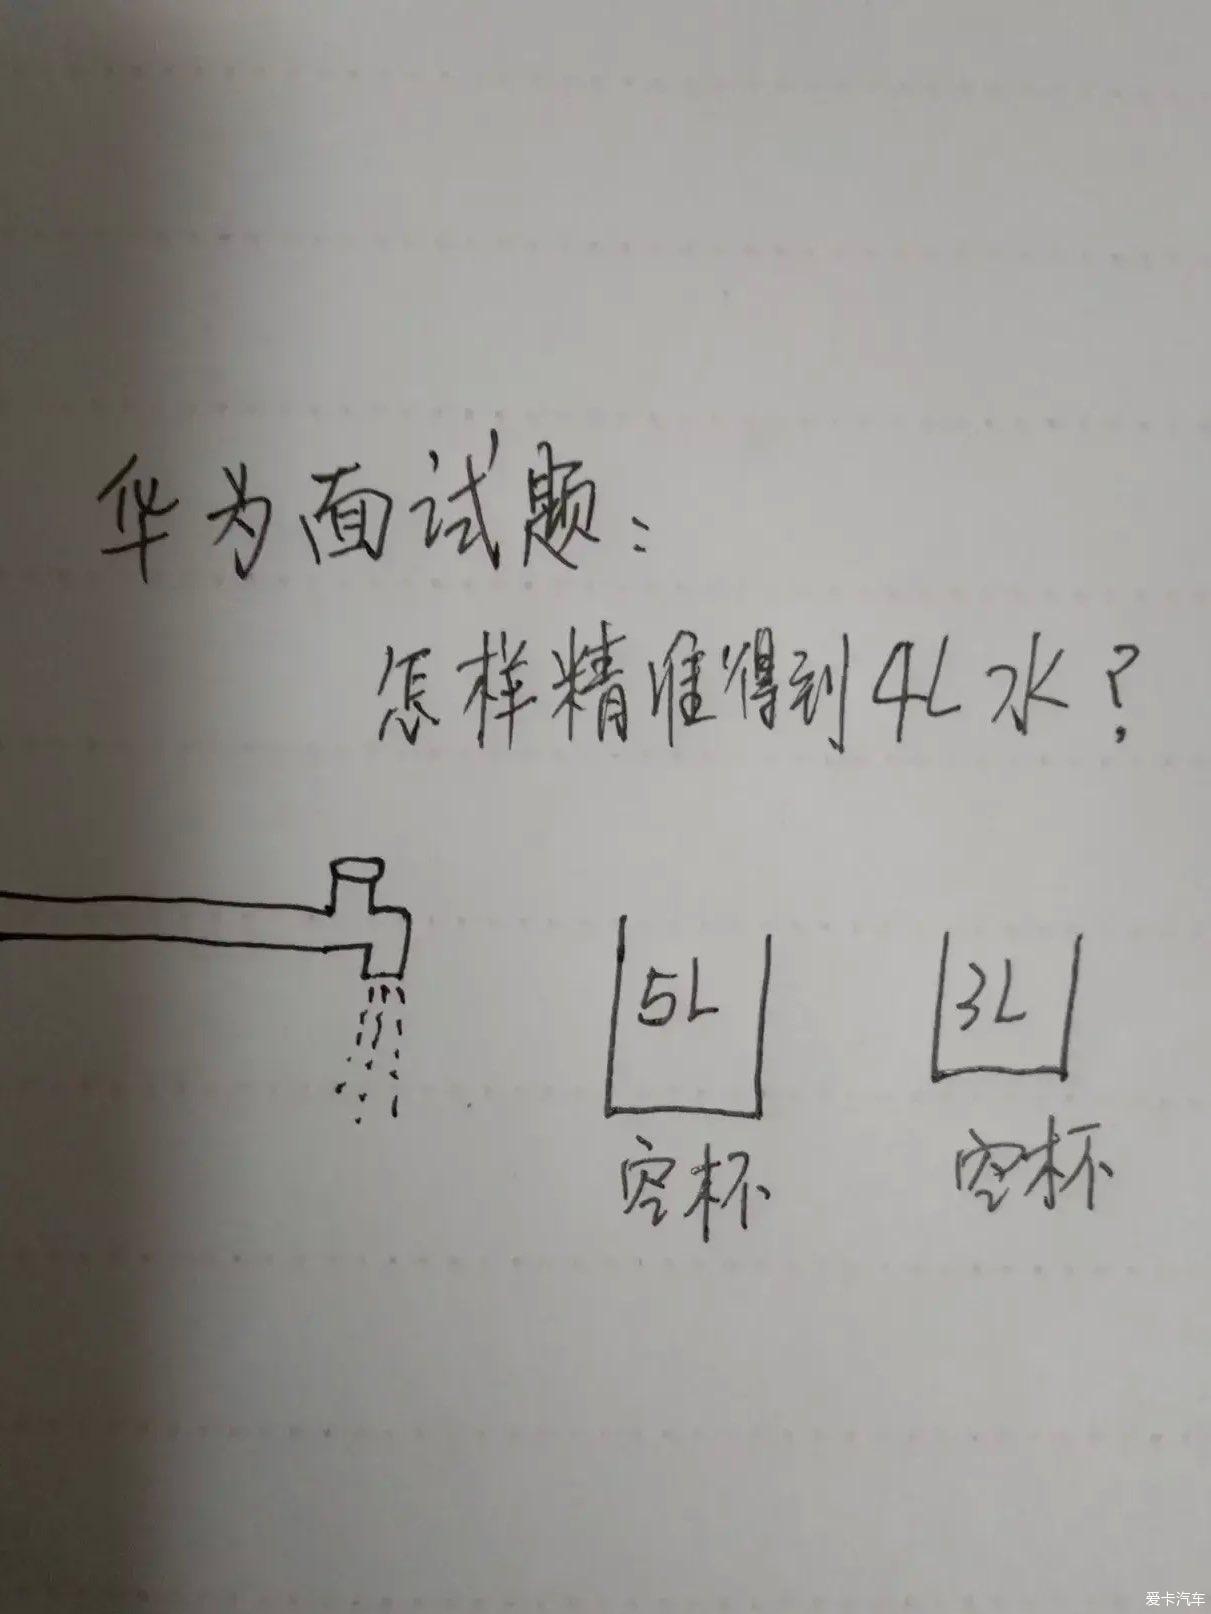 华为面试题：
怎样精准得到4L水？
5L 3L
空杯 空杯
爱卡汽车